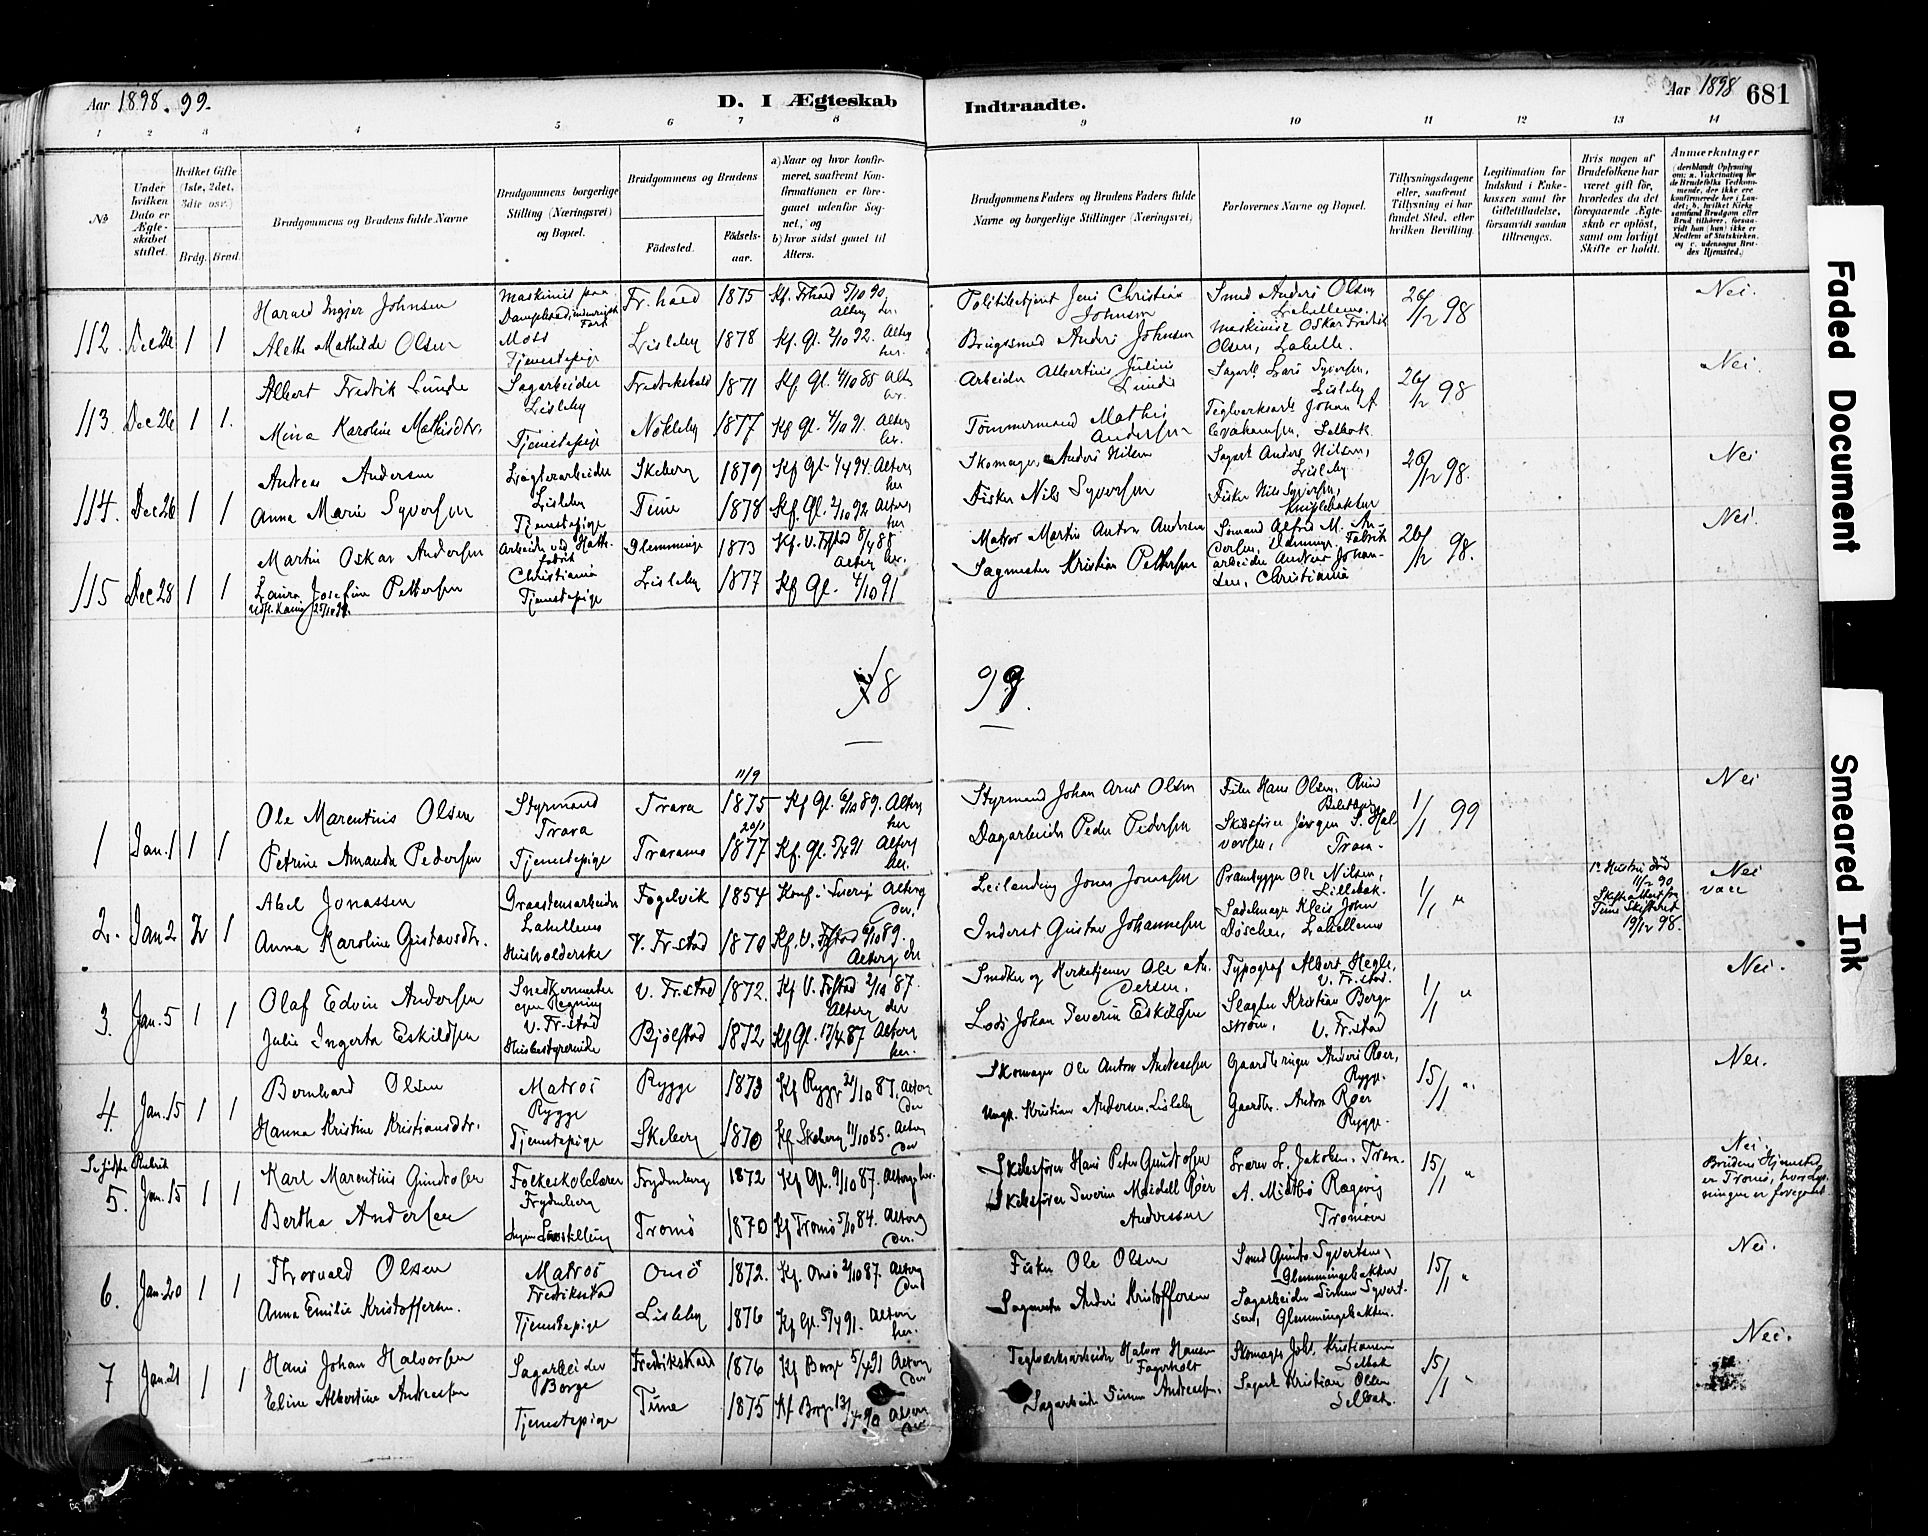 Aar 1898. 99.
D. I Ægteskab
Indtraadte.
Aar 1898
681
1 2 3 4 5 6 7 8 9 10 11 12 13 14
No
Under hvilken Dato er Ægteskabet stiftet.
Hvilket Gifte (1ste, 2det, 3die osv.)
Brdg. Brud.
Brudgommens og Brudens fulde Navne
Brudgommens borgerlige Stilling (Næringsvei) og Bopæl.
Brudgommens og Brudens
Födested.
Födselsaar.
a) Naar og hvor konfirmeret, saafremt Konfirmationen er foregaaet udenfor Sognet, og
b) hvor sidst gaaet til Alters.
Brudgommens Faders og Brudens Faders fulde Navne og borgerlige Stillinger (Næringsvei)
Forlovernes Navne og Bopæl.
Tillysningsdagene eller, saafremt Tillysning ei har fundet Sted, efter hvilken Bevilling.
Legitimation for Indskud i Enkekassen samt for Giftetilladelse, forsaavidt saadan tiltrænges.
Hvis nogen af Brudefolkene har været gift før, hvorledes da det foregaaende Ægteskab er oplöst, samt om lovligt Skifte er holdt.
Anmærkninger
112. Dec 26 1 1
Harald Ingjer Johnsen
Maskinist paa
Moss
Fr.hald 1875 Kf. Frhald 5/10 90
Politibetjent Jens Christian Johnsen
Smed Anders Olsen
26/12 98
Nei.
Alette Mathilde Olsen
Tjenestepige
Lisleby 1878 Kf. Gl. 2/10 92. Alterg her.
Brugssmed Anders Johnsen
Maskinist Oskar Fredrik Olsen, Labelle.
113. Dec 26 1 1.
Albert Fredrik Lunde
Sagarbeider Lisleby
Fredrikshald 1871 Kf Gl. 4/10 85 Alterg her.
Arbeider Albertius Julius Lunde
Sagarb. Lars Syversen, Lisleby
26/12 98
Nei.
Mina Karoline Mathisdtr.
Tjenestepige
Nökleby 1877 Kf Gl. 4/10 91. Alterg her.
Tömmermand Mathis Andersen
Teglverksarb. Johan A. Selbak
114. Dec 26 1 1
Andreas Andersen
Lisleby
Skeberg 1879 Kf Gl. Alterg her
Skomager Anders Nilsen
Sagarb Anders Nilsen, Lisleby
26/12 98.
Nei
Anna Marie Syversen
Tjenestepige
Tune 1878 Kf. Gl. 2/10 92 Alterg her
Fisker Nils Syversen
Fisker Nils Syversen,
115 Dec 28 1 1
Martin Oskar Andersen
Christiania
Glemminge 1873 Kf. V. Frstad 8/4 88 Alterg her.
Matros Martin Anton Andersen
Sömand Alfred M. Andersen,
26/12 98.
Nei.
Laura Josefine Pettersen
Tjenestepige
Lisleby 1877 Kf Gl. 4/10 91
Sagmester Kristian Pettersen
arbeider Andreas Johansen, Christiania
18 99.
1 Jan. 1 1 1
Ole Marentius Olsen
Styrmand Trara
Trara 11/9 1875 Kf Gl. 6/10 89. Alterg her
Styrmand Johan Arnt Olsen
Filer Hans Olsen.
1/1 99
Nei
Petrine Amanda Pedersen
Tjenestepige
Traramo 20/1 1877 Kf. Gl. 5/4 91 Alterg her.
Dagarbeider Peder Pedersen
Skibsförer Jörgen S. Halvorsen, Trara.
2. Jan 2 2 1
Abel Jonassen
Graastensarbeider Labellemo
Fogelvik 1854 Konf. i Sverig Alterg der.
Leilænding Jonas Jonassen
Prambygger Ole Nilsen, Lillebak.
1/1 "
1e Hustru död 11/2 90
Skifteattest fra Tune Skifteret 19/12 98.
Nei
vacc
Anna Karoline Gustavsdtr.
Husholderske
V. Fr.stad 1870 Kf. V. Frstad 6/10 89. Alterg der
Inderst Gustav Johannesen
Sadelmager Kleis John Döscher, Labellemo
3. Jan. 5 1 1
Olaf Edvin Andersen
Snedkermester egen Regning V. Fr.stad
V. Fr.stad 1872. Kf V. Frstad 2/10 87. Alterg der
Snedker og Kirketjener Ole Andersen.
Typograf Albert Hegle, V. Fr.stad.
1/1 "
Nei.
Julie Ingerta Eskildsen
Husbestyrerinde
Bjölstad 1872 Kf Gl. 17/4 87 Alterg her.
Lods Johan Severin Eskildsen
Slagter Kristian Bergström, V. Fr.stad
4. Jan. 15 1 1
Bernhard Olsen
Matros Rygge
Rygge 1873 Kf Rygge 2/10 87. Alterg der
Skomager Ole Anton Andreassen
Gaardbruger Anders Röer, Rygge.
15/1 "
Nei.
Hanna Kristine Kristiansdtr.
Tjenestepige
Skeberg 1870 Kf Skeberg 11/10 85. Alterg der
Ungk. Kristian Andersen, Lisleby
Gaardbr. Anton Röer Rygge.
Se sidste Rubrik
5. Jan. 15 1 1
Karl Marentius Gundersen
Folkeskolelærer Frydenberg
Frydenberg 1872 Kf Gl. 9/10 87. Alterg her.
Skibsförer Hans Peter Gundersen
Jakobsen. Trara.
15/1 "
Nei.
Brudens Hjemsted er Tromö, hvor lysningen er foregaaet
Bertha Andersen
Ingen Livsstilling
Tromö 1870 Kf Tromö 5/10 84. Alterg der.
Skibsförer Severin Meidell Röer Anderssen
A. Miethö Rægevig Tromöen
6. Jan. 20 1 1
Thorvald Olsen
Matros Fredriksstad
Onsö 1872. Kf. Onsö 2/10 87. Alterg der
Fisker Ole Olsen
Smed Gunder Syvertsen, Glemmingebakken
15/1 "
Nei.
Anna Emilie Kristoffersen.
Tjenestepige
Lisleby 1876 Kf Gl. 5/4 91. Alterg her.
Sagmester Anders Kristoffersen
Sagarbeider Simen Syvertsen, Glemmingebakken.
7 Jan. 21 1 1
Hans Johan Halvorsen
Sagarbeider Borge
Fredrikstad 1876 Kf Borge 5/4 91 Alterg der
Teglværksarbeider Halvor Hansen Fagerholt
Skomager Johs. Kristiansen Selbak
15/1 "
Nei.
Eline Albertine Andreassen
Tjenestepige
Tune 1875 Kf Borge 13/4 90 Alterg der
Sagarbeider Simen Andreassen.
Sagarb Kristian Olsen Selbak.
Faded Document
Smeared Ink